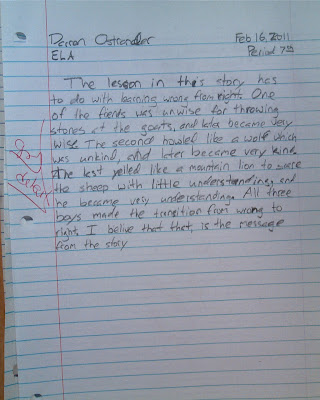 Derran Ostrander Feb 16, 2011
ELA Period 7th
The lesson in this story has
to do with learning wrong from right. One
of the fients was unwise for throwing
stones at the goats, and later became very
wise. The second howled like a wolf which
was unkind, and later became very kind.
The last yelled like a mountain lion to scare
the sheep with little understanding, and
he became very understanding. All three
boys made the transition from wrong to
right. I belive that that, is the message
from the story